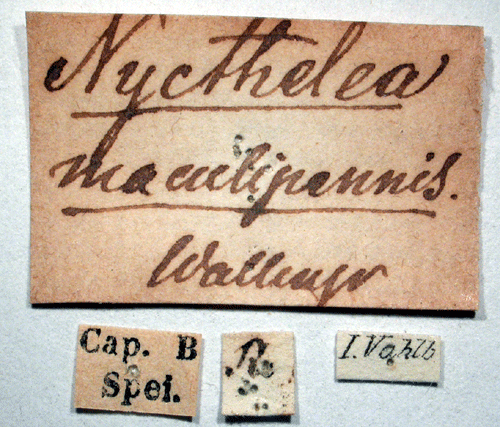 Nycthelea
maculipennis.
Wallengr
Cap. B
Spei.
I. Vahlb